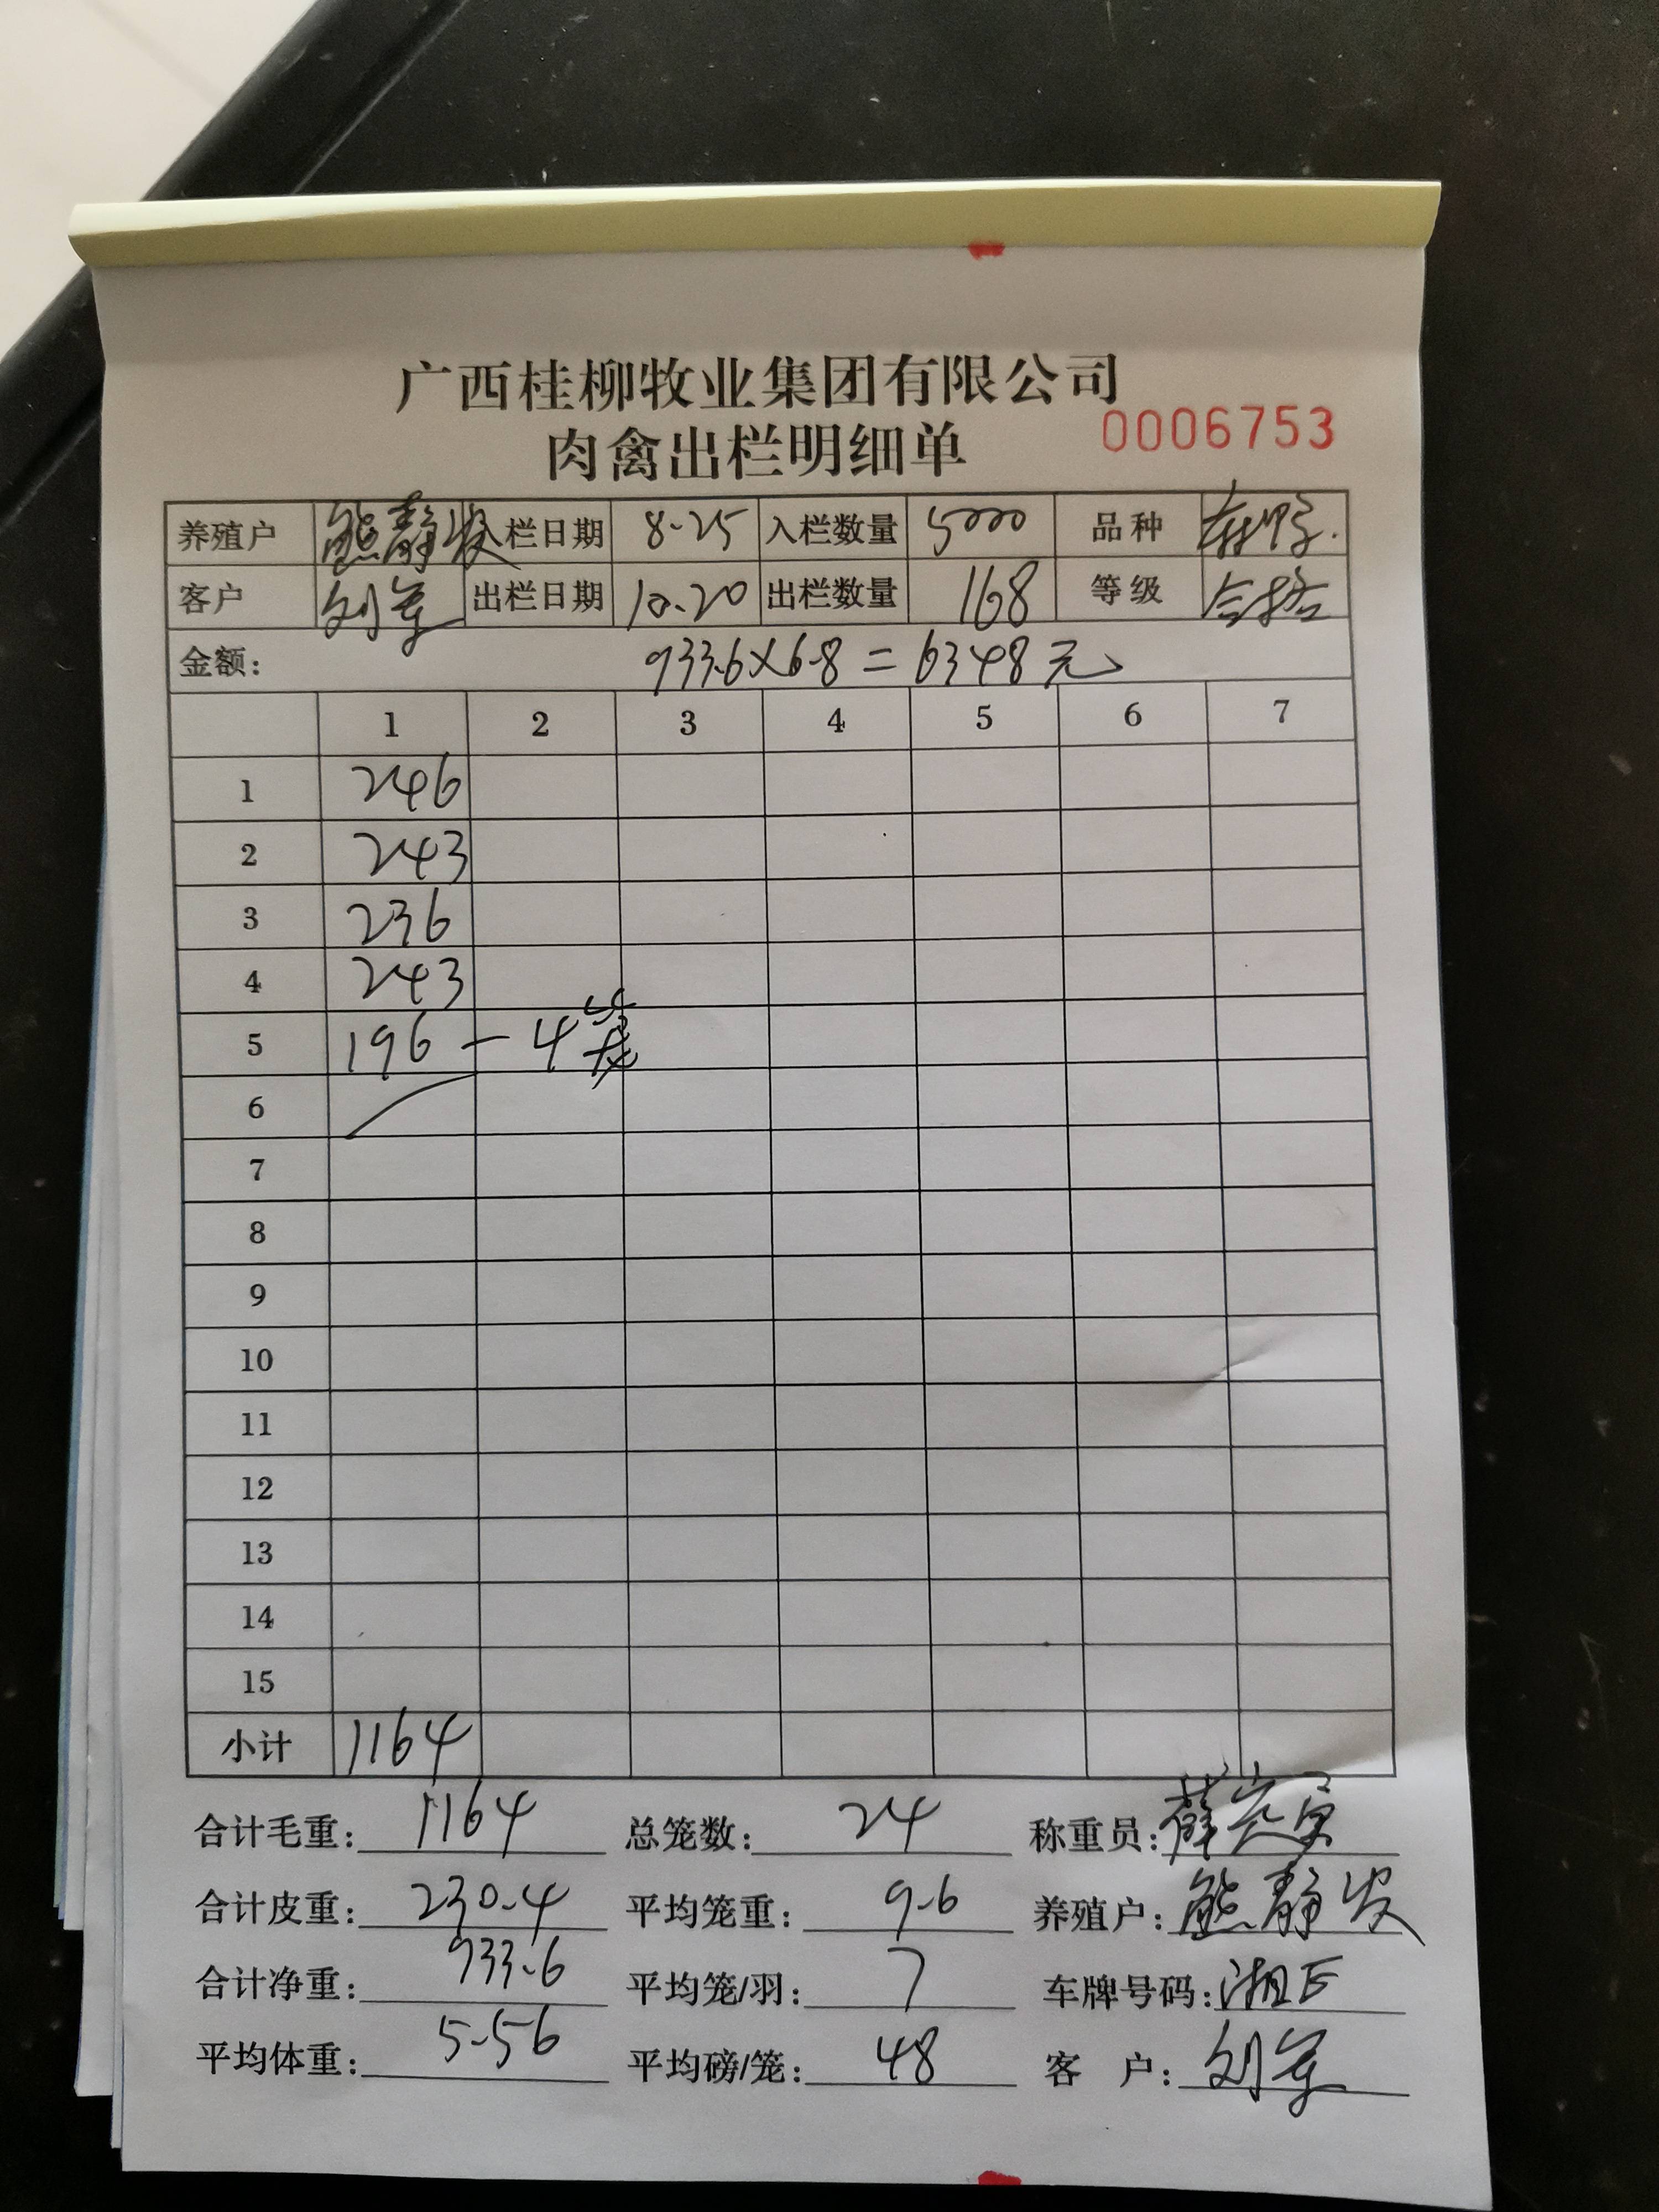 广西桂柳牧业集团有限公司
肉禽出栏明细单 0006753
养殖户 熊静发 入栏日期 8-25 入栏数量 5000 品种
客户 刘军 出栏日期 10.20 出栏数量 168 等级 合格
金额: 933.6×6.8=6348元
1 2 3 4 5 6 7
1 246
2 243
3 236
4 243
5 196 — 4笼
6
7
8
9
10
11
12
13
14
15
小计 1164
合计毛重: 1164 总笼数: 24 称重员:
合计皮重: 230.4 平均笼重: 9.6 养殖户: 熊静发
合计净重: 933.6 平均笼/羽: 7 车牌号码: 湘E
平均体重: 5.56 平均磅/笼: 48 客 户: 刘军